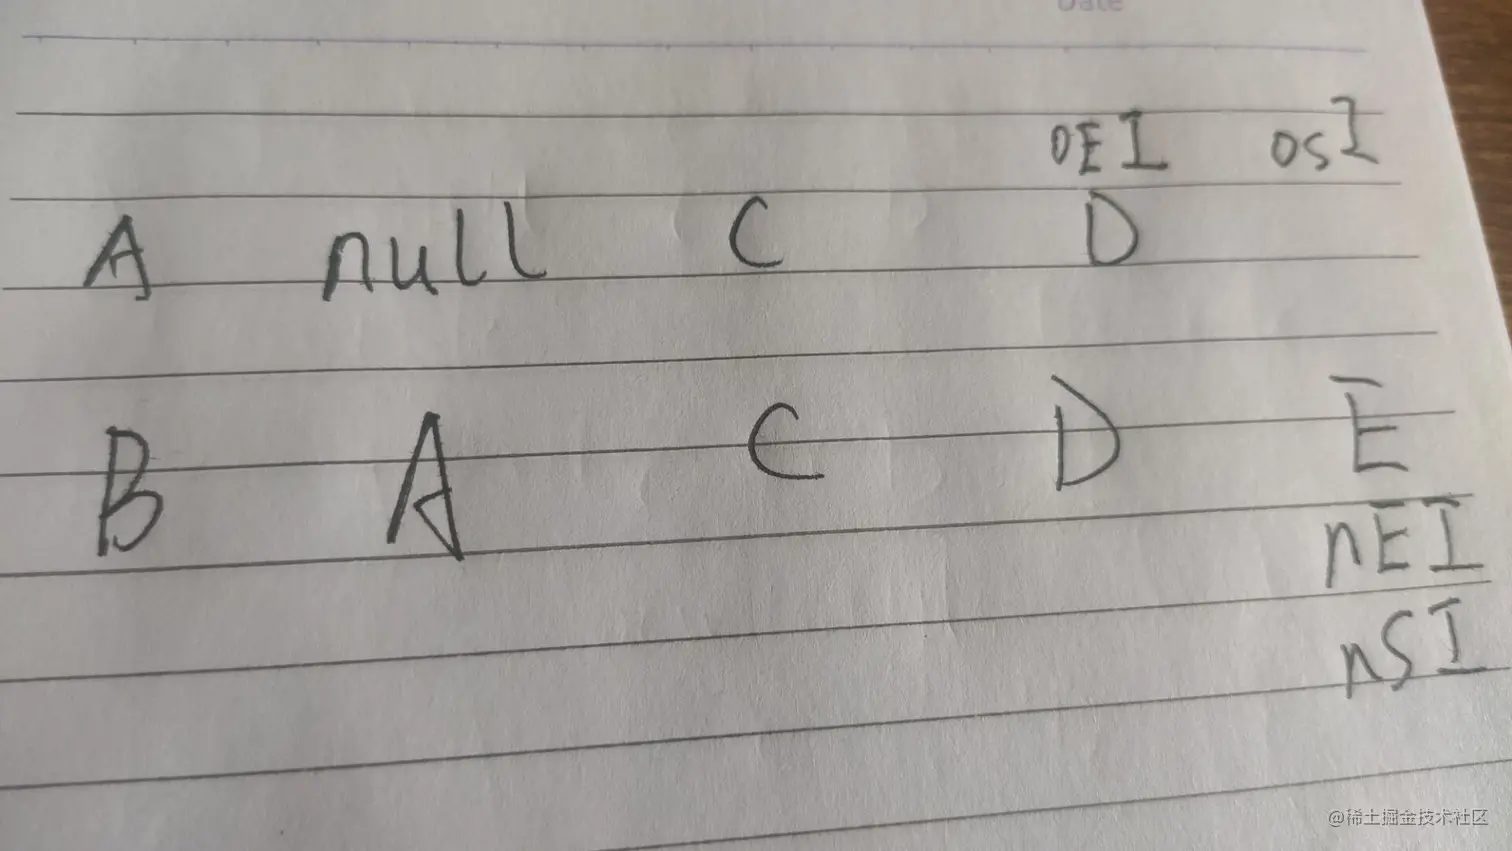 Date
OEI OSI
A null C D
B A C D E
nEI
nSI
@稀土掘金技术社区